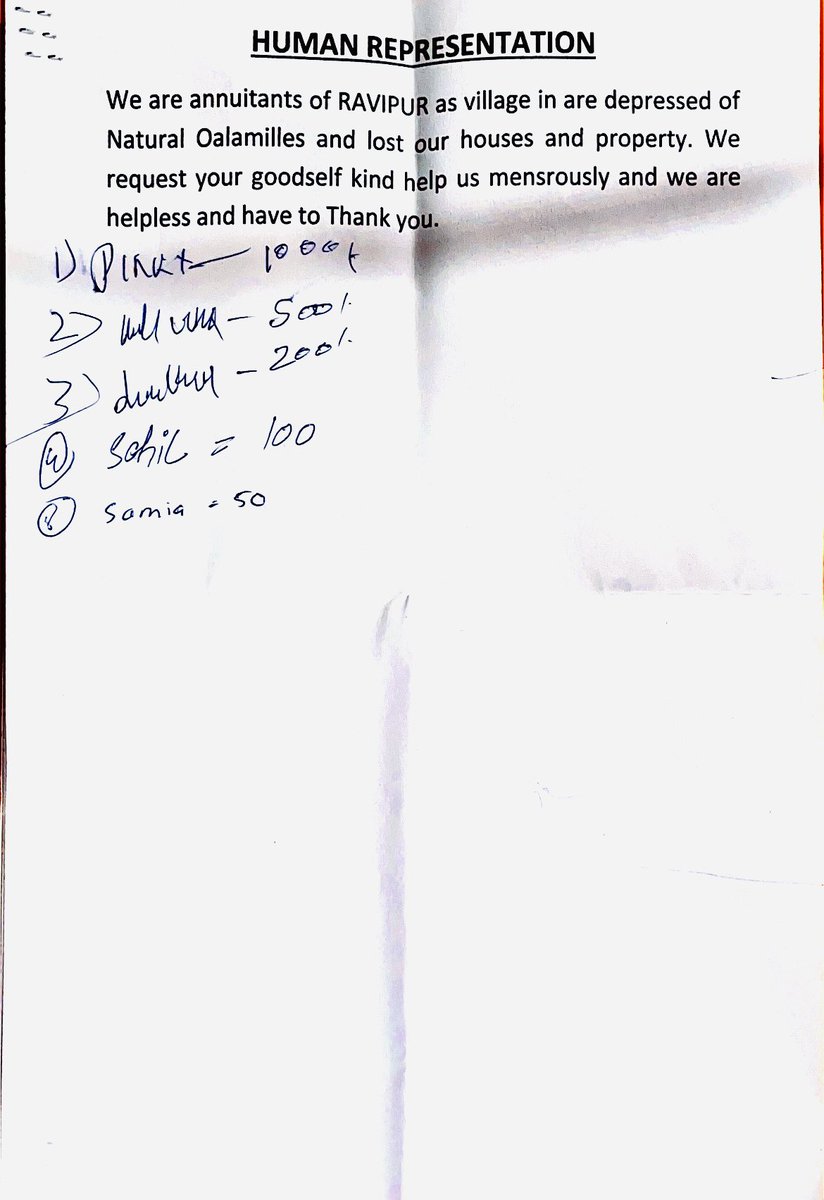 HUMAN REPRESENTATION
We are annuitants of RAVIPUR as village in are depressed of
Natural Oalamilles and lost our houses and property. We
request your goodself kind help us mensrously and we are
helpless and have to Thank you.
1) 1000/
2) - 500/.
3) - 200/.
4) Sohil = 100
5) Samia = 50